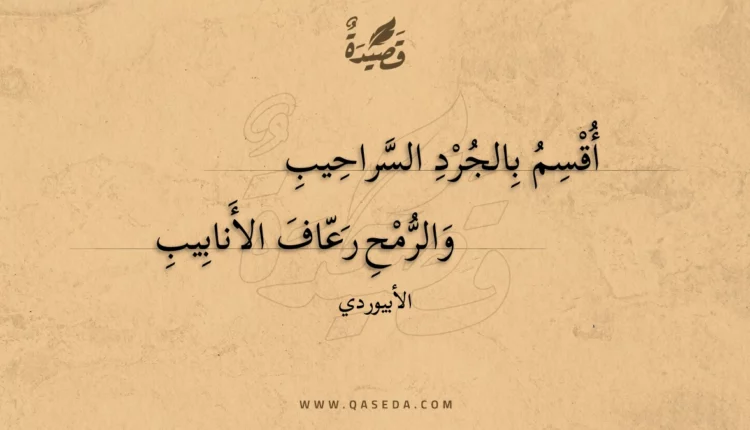 قَصِيدَةٌ
أُقْسِمُ بِالجُرْدِ السَّراحِيبِ
وَالرُّمْحِ رَعّافَ الأَنابِيبِ
الأبيوردي
WWW.QASEDA.COM